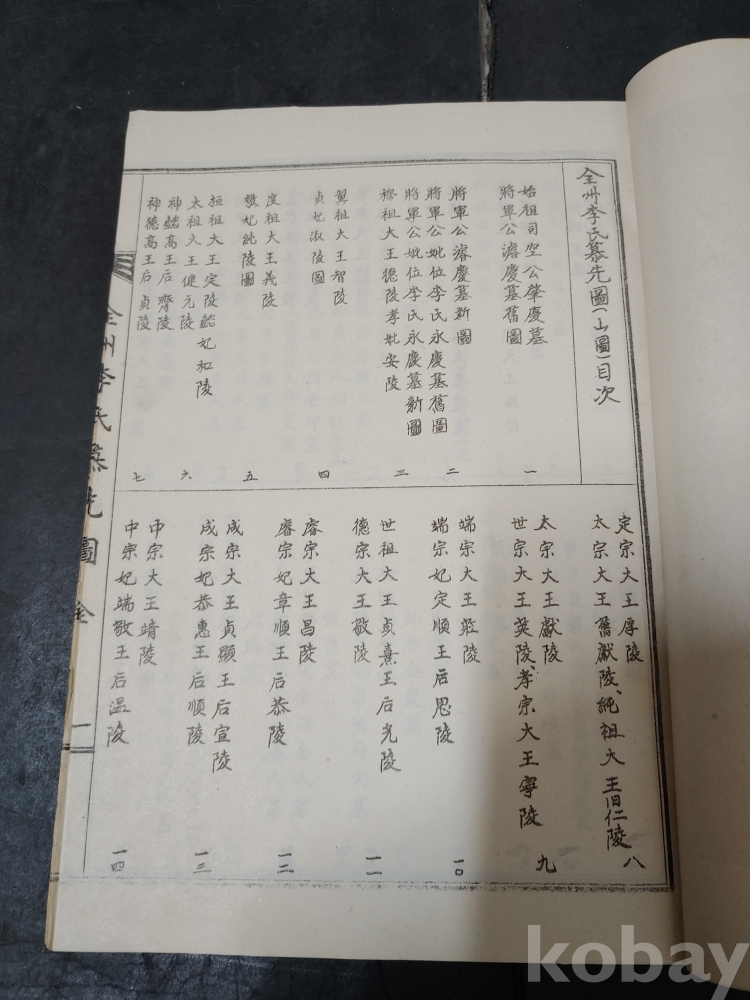 全州李氏慕先圖(山圖)目次
始祖司空公肇慶墓
將軍公濬慶墓舊圖
一
將軍公濬慶墓新圖
將軍公妣位李氏永慶墓舊圖
二
將軍公妣位李氏永慶墓新圖
穆祖大王德陵孝妣安陵
三
翼祖大王智陵
貞妃淑陵圖
四
度祖大王義陵
懿妃純陵圖
五
桓祖大王定陵懿妃和陵
太祖大王健元陵
六
神懿高王后齊陵
神德高王后貞陵
七
定宗大王厚陵
太宗大王舊獻陵、純祖大王旧仁陵
八
太宗大王獻陵
世宗大王英陵、孝宗大王寧陵
九
端宗大王莊陵
端宗妃定順王后思陵
一〇
世祖大王貞熹王后光陵
德宗大王敬陵
一一
睿宗大王昌陵
睿宗妃章順王后恭陵
一二
成宗大王貞顯王后宣陵
成宗妃恭惠王后順陵
一三
中宗大王靖陵
中宗妃端敬王后温陵
一四
全州李氏慕先圖 全
一
kobay